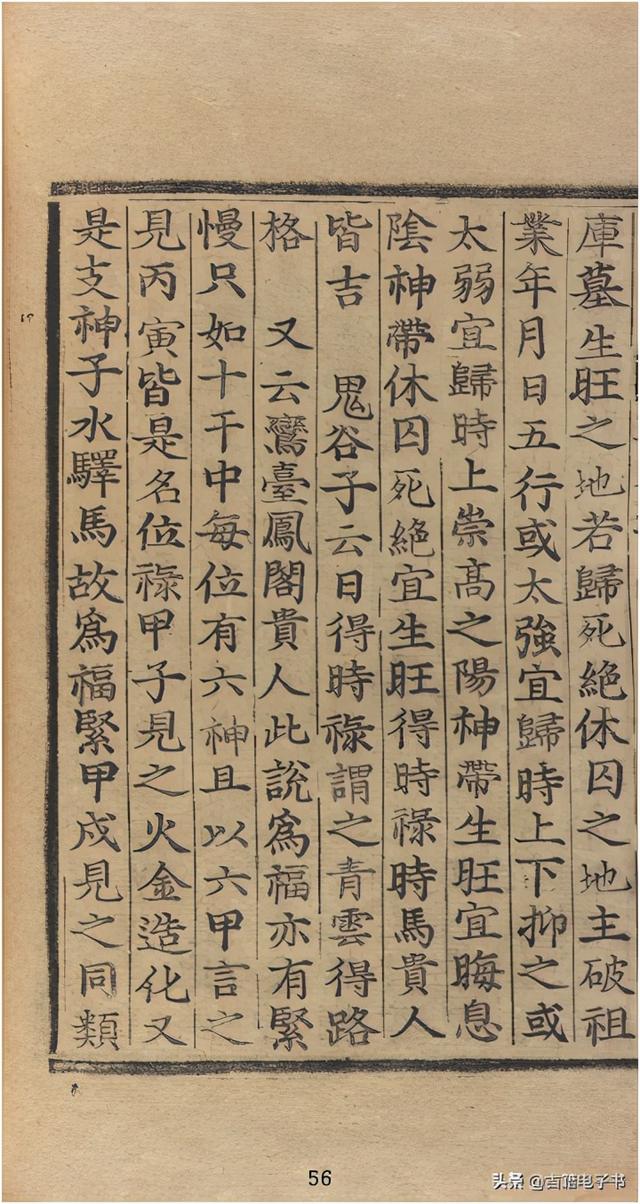 庫墓生旺之地若歸死絶休囚之地主破祖
業年月日五行或太強宜歸時上下抑之或
太弱宜歸時上崇髙之陽神帶生旺宜晦息
陰神帶休囚死絶宜生旺得時祿時馬貴人
皆吉　鬼谷子云日得時祿謂之青雲得路
格　又云鸞臺鳳閣貴人此說爲福亦有緊
慢只如十干中每位有六神且以六甲言之
見丙寅皆是名位祿甲子見之火金造化又
是支神子水驛馬故爲福緊甲戍見之同類
56
头条 @古籍电子书